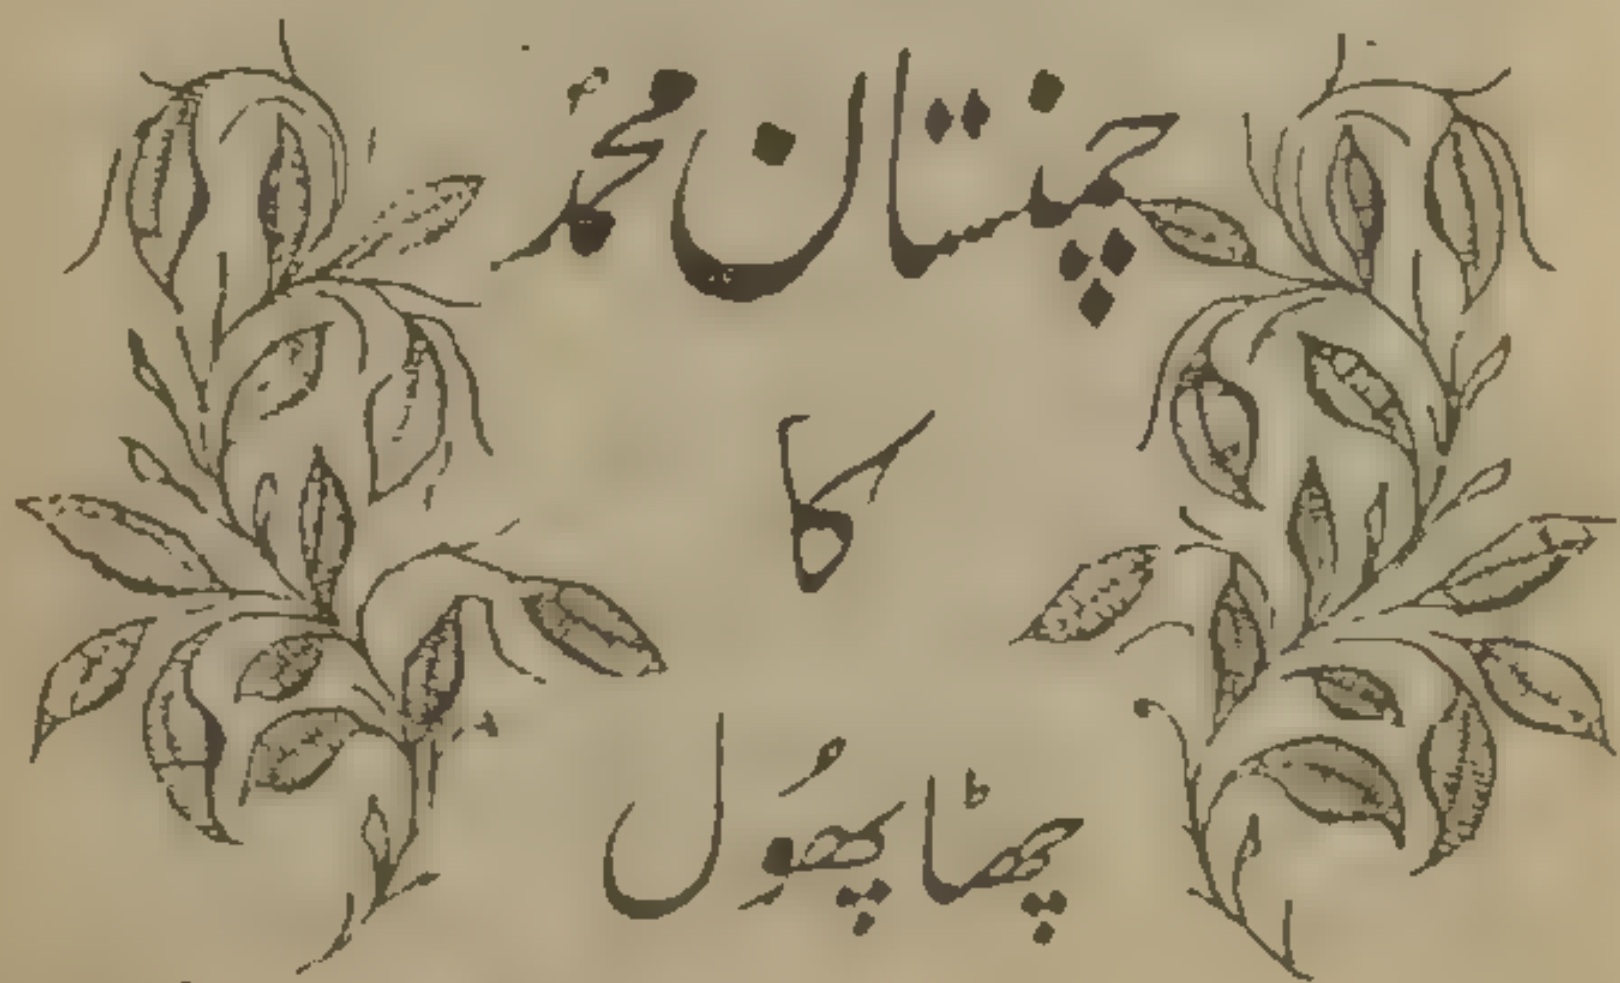 چمنستان محمدؐ
کا
چھٹا پھُول